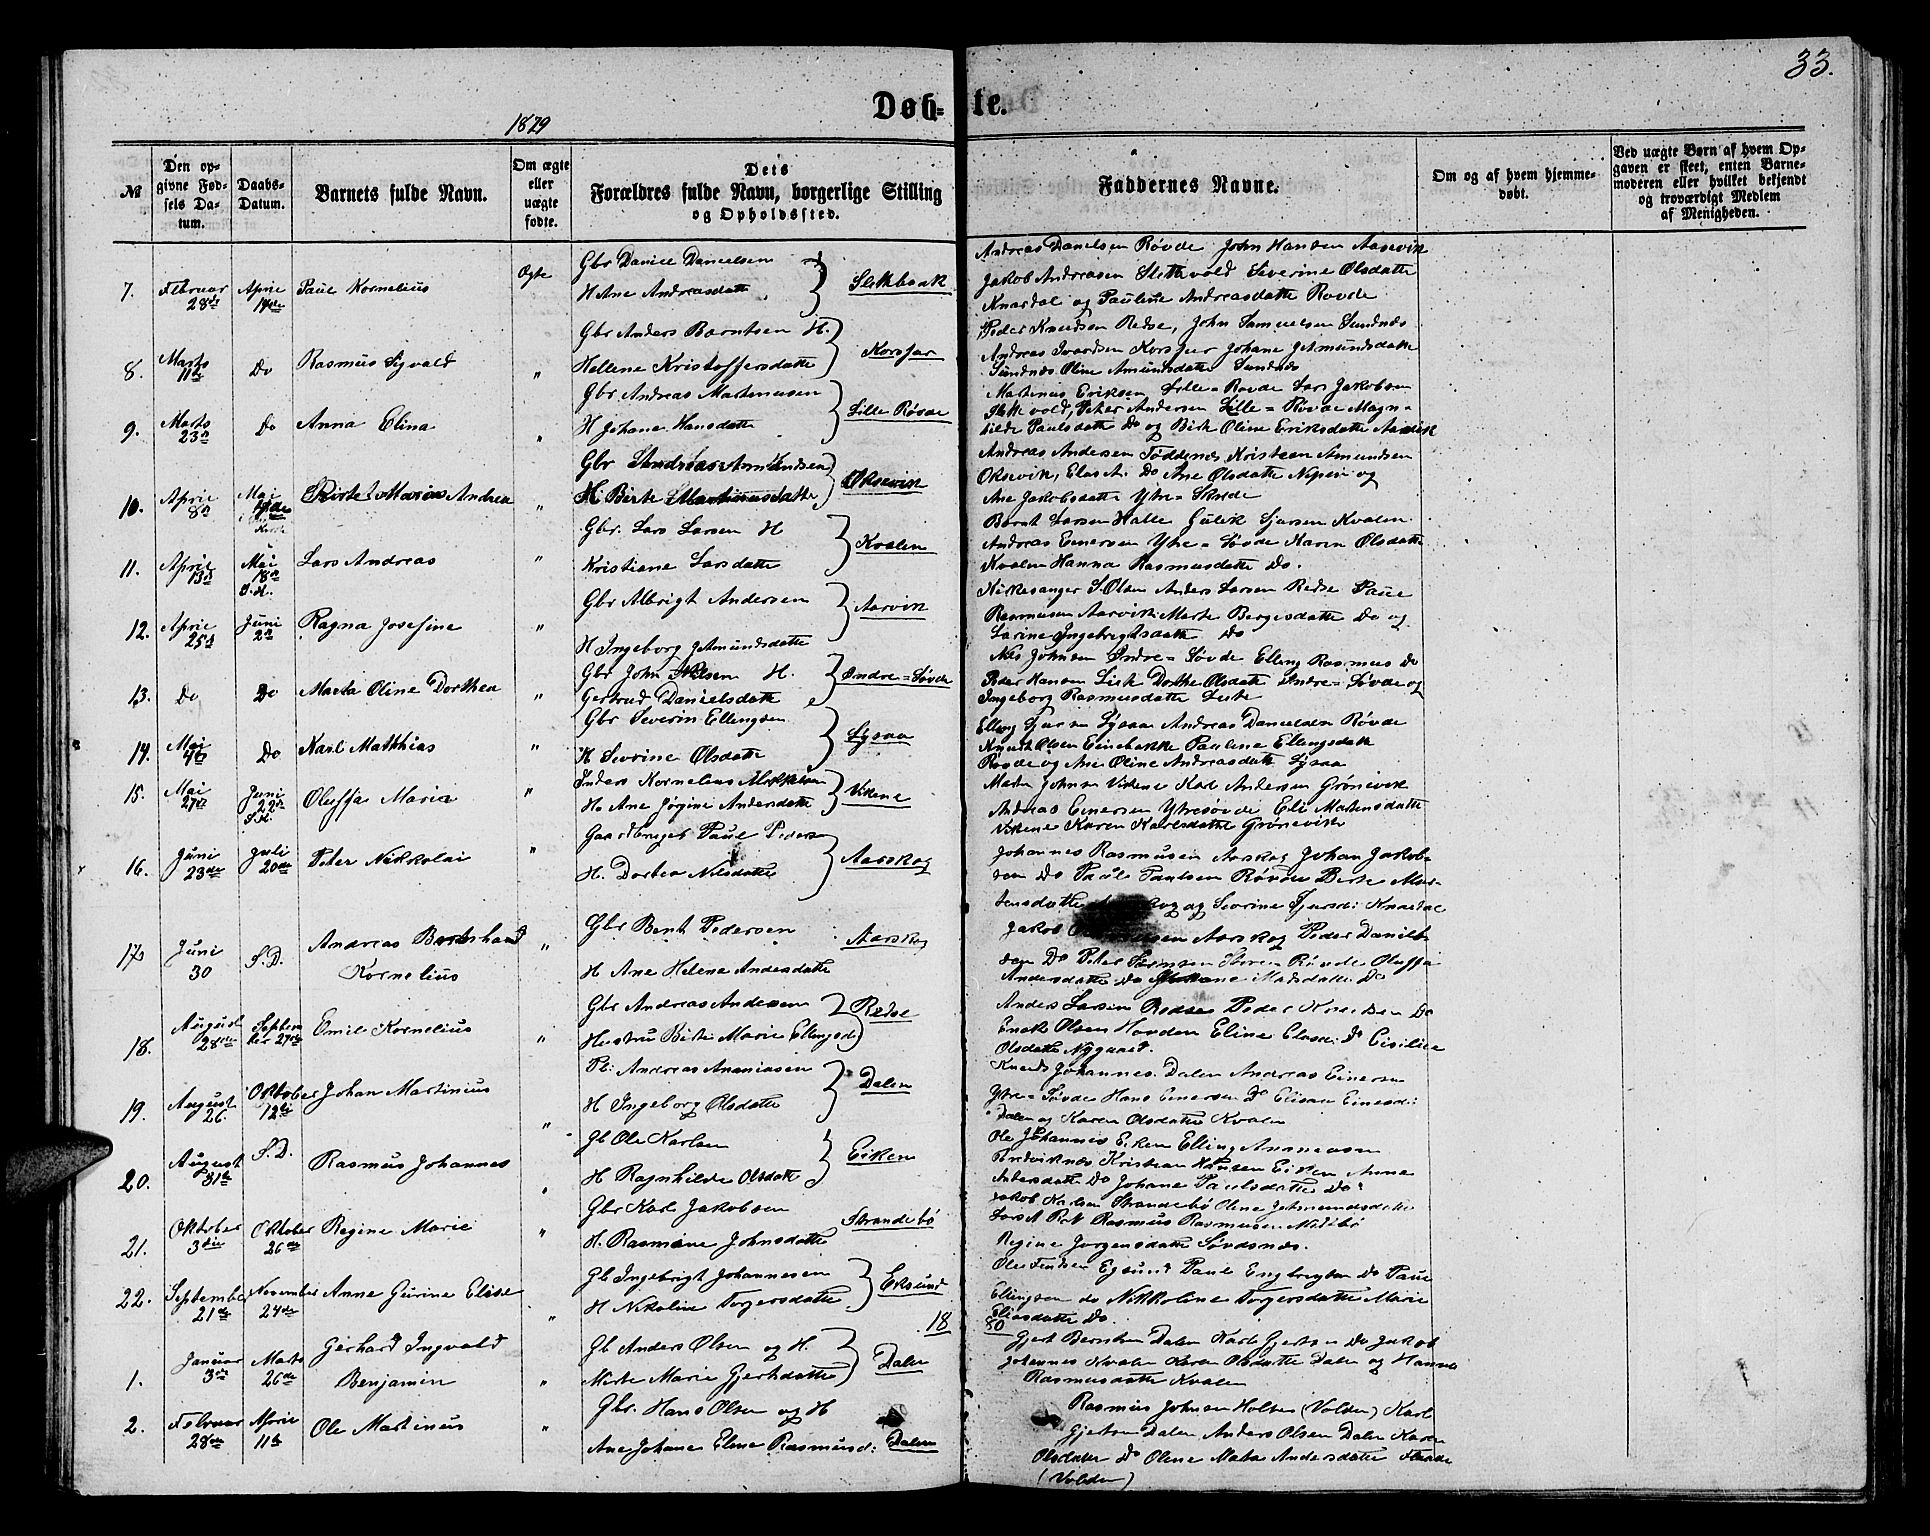 33.
Døb-te.
1879
№
Den op-
givne Fød-
sels Da-
tum.
Daabs-
Datum.
Barnets fulde Navn.
Om ægte
eller
uægte
fødte.
Dets
Forældres fulde Navn, borgerlige Stilling
og Opholdssted.
Faddernes Navne.
Om og af hvem hjemme-
døbt.
Ved uægte Børn af hvem Op-
gaven er skeet, enten Barne-
moderen eller hvilket bekjendt
og troværdigt Medlem
af Menigheden.
7. Februar 28de April 14de Paul Kornelius Ægte
Gbr Daniel Danielsen
H Ane Andreasdatte Slethvak
Andreas Danielsen Røvde John Hansen Aasevik
Jakob Andreasen Slettevold Severine Olsdatte
Knardal og Pauline Andreasdatte Rovde
8. Marts 11te Do Rasmus Sigvald "
Gbr Anders Berntsen H.
Hellene Kristoffersdatte Korsfur
Peder Knudsen Redse, John Samuelsen Sundnæs
Andreas Ivardsen Korsfur Johane J Amundsdatte
Sundnæs Oline Amundsdatte Sundnæs
9. Marts 23n Do Anna Elina "
Gbr Andreas Martinusen
H Johane Hansdatte Lille Røvde
Martinus Eriksen Lille=Rovde Lars Jakobsen
Slettevold, Peter Andersen Lille=Røvde Magn=
hilde Paulsdatte Do og Birte Oline Eriksdatte Aasevik
10. April 8n Mai Birte Marias Andrea "
Gbr Andreas Amundsen
H Birte Martinusdatte Oksevik
Andreas Andersen Tøddenæs Kristian Amundsen
Oksevik, Elias A. Do Ane Olsdatte Nypen og
Ane Jakobsdatte Ytre=Skrede
11. April 13n Mai 18n S.K. Lars Andreas "
Gbr. Lars Larsen H
Kristiane Larsdatte Kvalen
Bernt Larsen Halle Gulik Sjursen Kvalen
Andreas Einersen Ytre=Søvde Karen Olsdatte
Kvalen Hanna Rasmusdatte Do.
12. April 25n Juni 2n Ragna Josefine "
Gbr Albrigt Andersen
H Ingeborg J Amundsdatte Aarvik
Kirkesanger S Olsen Anders Larsen Redse Paul
Rasmusen Aarvik Marte Bergesdatte Do og
Larine Ingebrigtsdatte Do
13. Do Do Marta Oline Dorthea "
Gbr John Nilsen H.
Gertrud Danielsdatte Indre=Søvde
Nils Johnsen Indre=Søvde Elling Rasmus Do
Peder Hansen Liset Dorthe Olsdatte Indre=Søvde og
Ingeborg Rasmusdatte Liset
14. Mai Do Karl Matthias "
Gbr Severin Ellingsen
H Severine Olsdatte Lysaa
Elling Lysaa Andreas Danielsen Røvde
Knut Olsen Einebakke Pauline Ellingsdatte
Røvde og Ane Oline Andreasdatte Lysaa
15. Mai 27n Juni 22n S.K. Oluffa Maria "
Inders Kornelius
H. Ane Jørgine Andersdatte Vikene
Marten Johnsen Vikene Karl Andersen Grønevik
Andreas Einersen Ytresøvde Eli Martensdatte
Vikene Karen Karlsdatte Grønevik
16. Juni 23de Juli 20de Peter Nikkolai "
Gaardbruger Paul Peders
H. Dorthea Nilsdatte Aarskog
Johannes Rasmusen Aarskog Johan Jakob=
sen Do Paul Paulsen Røvde Berte Mar=
tensdatte og Severine Sjursd: Knardal
17. Juni 30 S.D. Andreas Berthard
Kornelius "
Gbr Bent Pedersen
H Ane Helene Andersdatte Aarskog
Jakob Aarskog Peder Daniel=
sen Do Peter Sørensen Store=Røvde Oluffa
Andersdatte Do Madsdatte Do
18. August 28de Septem
ber 27de Emil Kornelius "
Gbr Andreas Andersen
Hustru Birte Marie Ellingsd Redse
Anders Larsen Redse Peder Knudsen Do
Enok Olsen Hovden Eline Elasd: Do Cicilie
Olsdatte Nygaard.
19. August 26. Oktober 12te Johan Martinius "
Pl: Andreas Ananiasen
H Ingeborg Olsdatte Dalen
Knuds Johannes. Dalen Andreas Einersen
Ytre=Søvde Hans Einersen Do Elisae Einersd:
Dalen og Karen Olsdatte Kvalen
20. August 31te S.D. Rasmus Johannes "
Gb Ole Karlsen
H Ragnhilde Olsdatte Eiken
Ole Johannes Eiken Elling Ananiasen
Kristian Hansen Eiken Anne
Andersdatte Do Johane Paulsdatte Do
21. Oktober 3die Oktober 26de Regine Marie "
Gbr Karl Jakobsen
H. Rasmine Johnsdatte Strandebø
Jakob Karlsen Strandebø Oline J Amundsdatte
Rasmus Rasmusen Midtbø
Regine Jørgensdatte Søvdsnæs.
22. September 21de November 24de Anne Gurine Elise "
Gb Ingebrigt Johannesen
H Nikoline Torgersdatte Eksund
Ole Endsen Egsund Paul Engbregtsen Do Paul
Ellingsen do Nikkoline Torgersdatte Marie
Eliasdatte Do.
1880
1. Januar 3die Marts 26de Gerhard Ingvald
Benjamin "
Gb Anders Olsen og H.
Marte Marie Gjertsdatte Dalen
Gjert Berntsen Dalen Karl Gjertsen Do Jakob
Johannes Kvalen Karen Olsdatte Dalen og Hanna
Rasmusdatte Kvalen
2. Februar 28de April 11te Ole Martinus "
Gbr. Hans Olsen og H
Ane Johane Eline Rasmusd: Dalen
Rasmus Johnsen Holsen (Volden) Karl
Gjertsen Dalen Anders Olsen Dalen Karen
Olsdatte Do Oline Marta Andersdatte
(Volden)